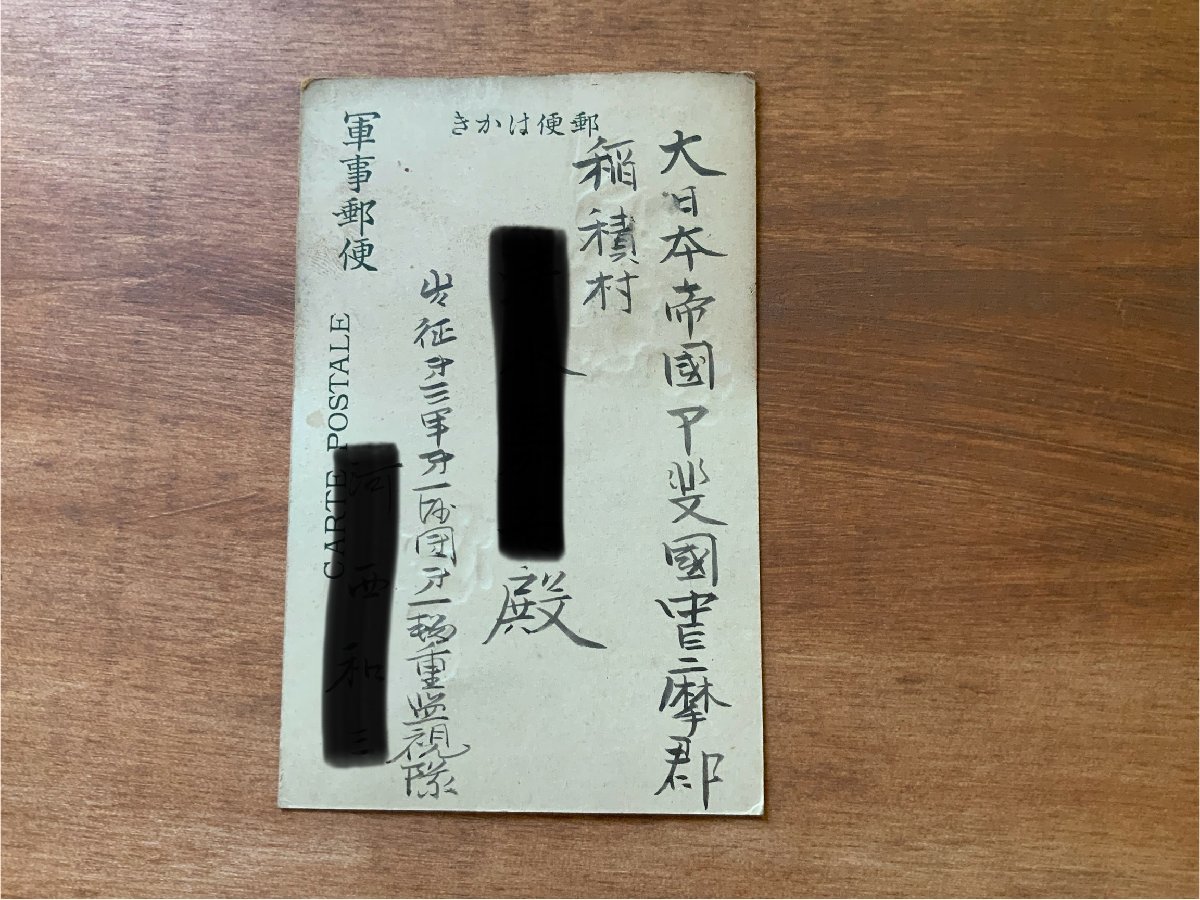 郵便はかき
大日本帝國甲斐國中巨摩郡
稲積村
殿
出征第三軍第一師団第一輜重監視隊
軍事郵便 CARTE POSTALE